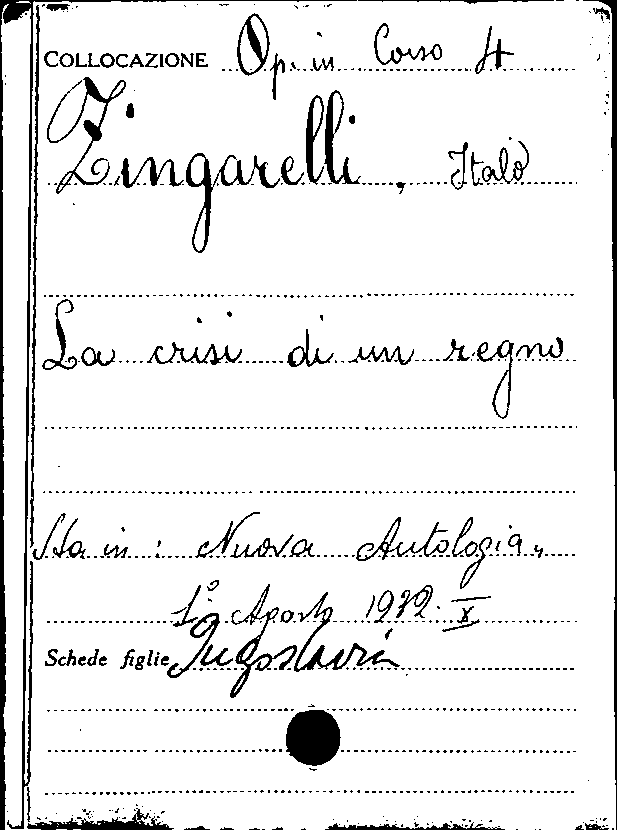 COLLOCAZIONE Op. in Corso 4
Zingarelli, Italo
La crisi di un regno
Sta in: Nuova Antologia,
1° Agosto 1932. X
Schede figlie Jugoslavia